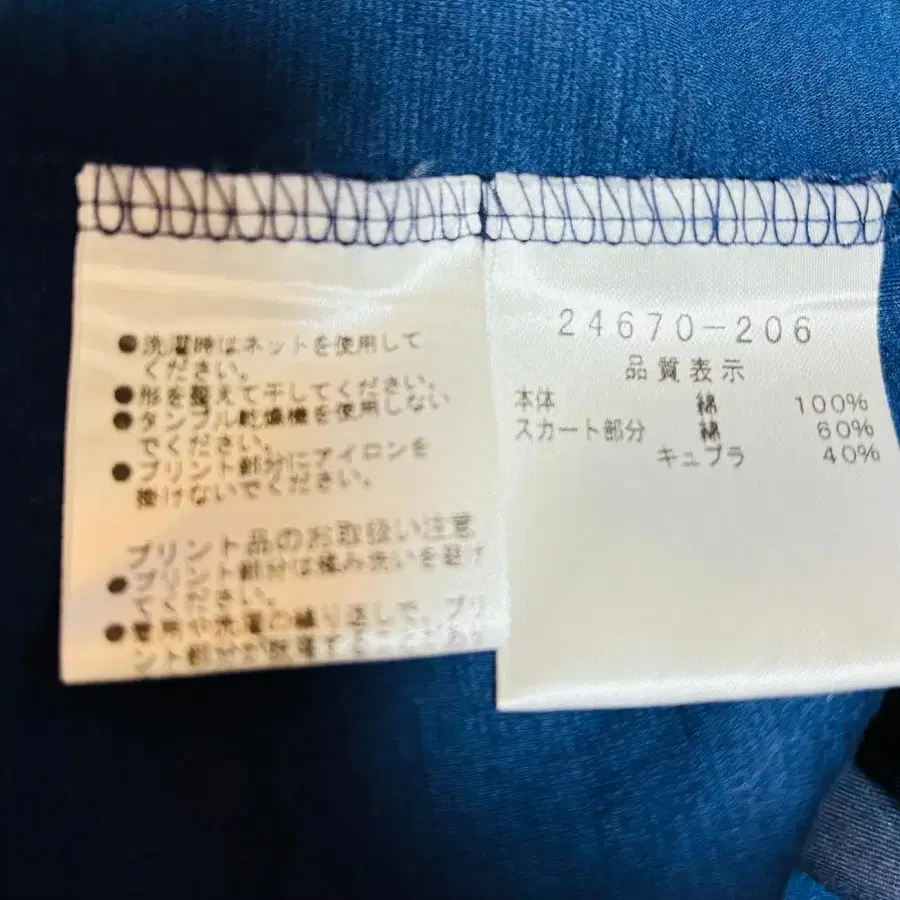 ●洗濯時はネットを使用して
ください。
●形を整えて干してください。
●タンブル乾燥機を使用しない
でください。
●プリント部分にアイロンを
掛けないでください。
プリント品のお取扱い注意
●プリント部分は揉み洗いを避け
てください。
●着用や洗濯の繰り返しで、プリ
ント部分が
24670-206
品質表示
本体 綿 100%
スカート部分 綿 60%
キュプラ 40%